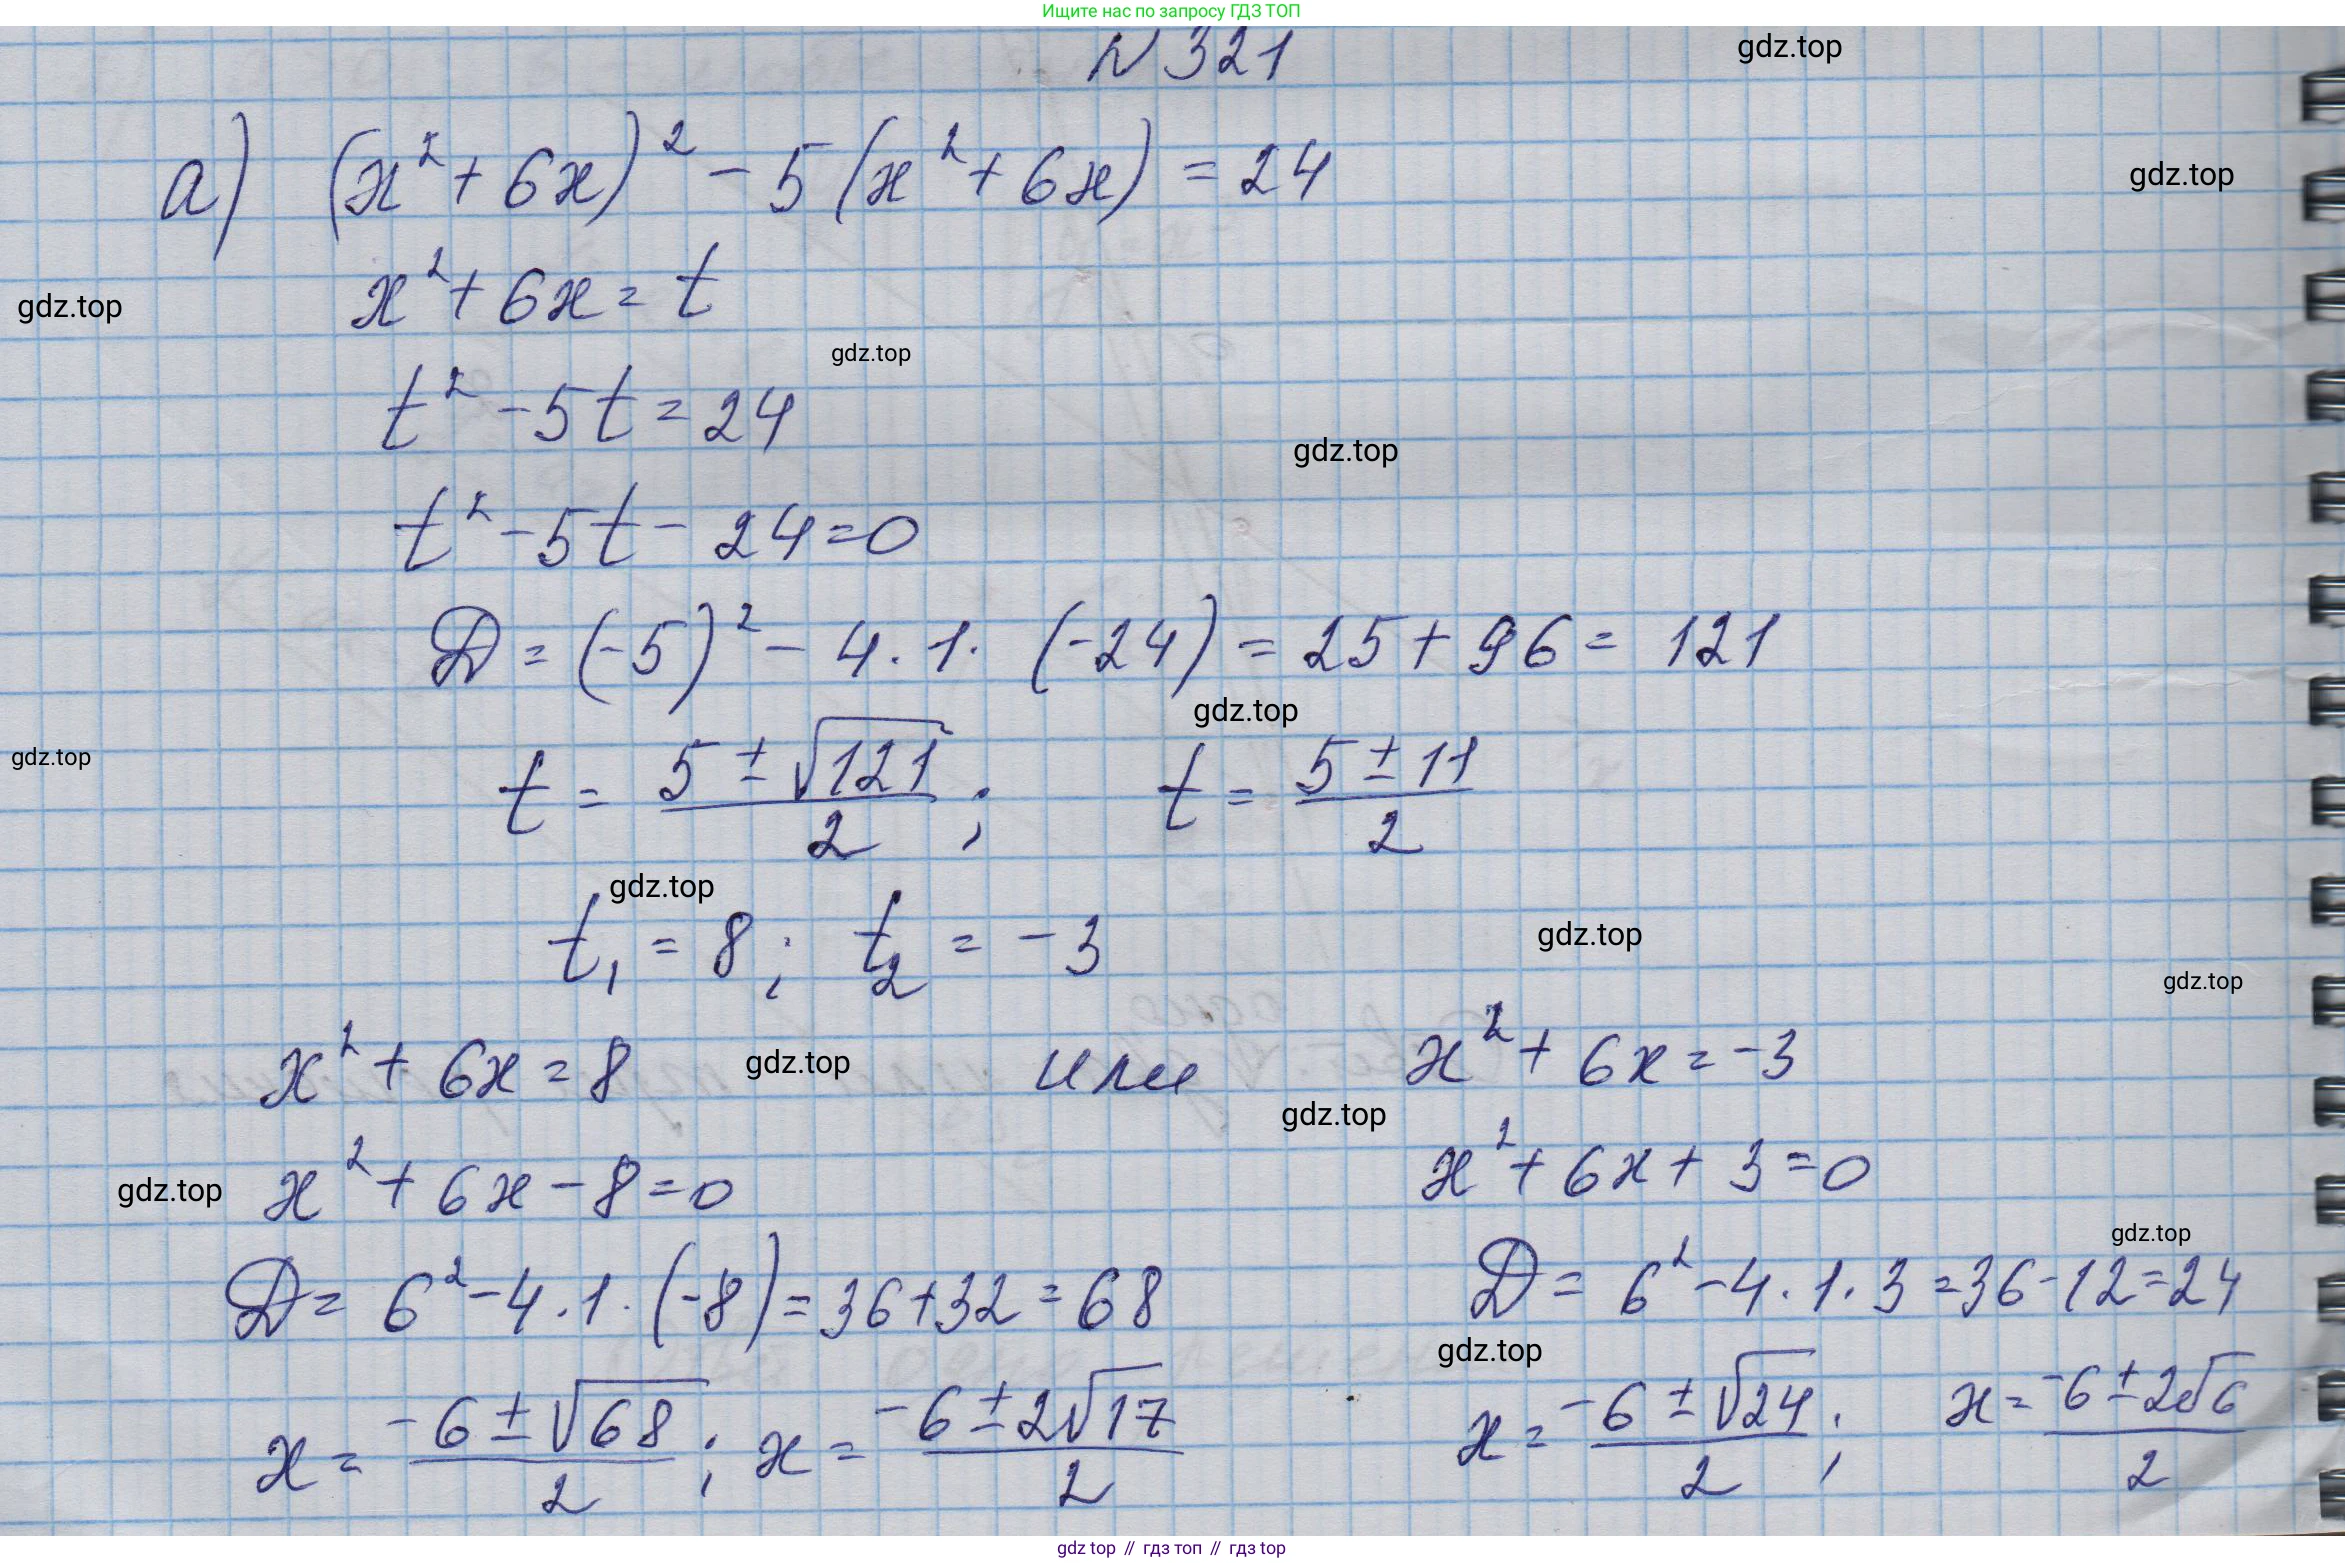 Ищите нас по запросу ГДЗ ТОП
N 321
gdz.top
а) (x² + 6x)² - 5 (x² + 6x) = 24
gdz.top
x² + 6x = t
gdz.top
gdz.top
t² - 5t = 24
gdz.top
t² - 5t - 24 = 0
D = (-5)² - 4 · 1 · (-24) = 25 + 96 = 121
gdz.top
gdz.top
t = (5 ± √121)/2 ; t = (5 ± 11)/2
gdz.top
t₁ = 8 ; t₂ = -3
gdz.top
gdz.top
x² + 6x = 8 gdz.top или x² + 6x = -3
gdz.top
gdz.top x² + 6x - 8 = 0 x² + 6x + 3 = 0
gdz.top
D = 6² - 4 · 1 · (-8) = 36 + 32 = 68 D = 6² - 4 · 1 · 3 = 36 - 12 = 24
gdz.top
x = (-6 ± √68)/2 ; x = (-6 ± 2√17)/2 x = (-6 ± √24)/2 ; x = (-6 ± 2√6)/2
gdz top // гдз топ // гдз top